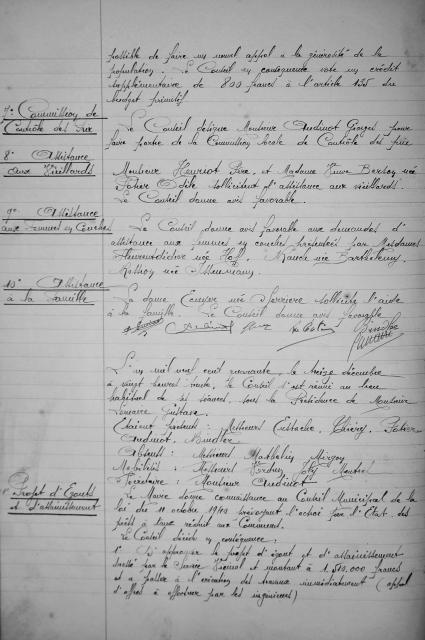 possible de faire un nouvel appel à la générosité de la
population. Le Conseil en conséquence vote un crédit
supplémentaire de 800 francs à l'article 135 du
budget primitif
7° Commission de
Contrôle des Prix
Le Conseil désigne Monsieur Audinot Georges pour
faire partie de la Commission locale de Contrôle des prix
8° Assistance
aux Vieillards
Monsieur Henriot Père, et Madame Veuve née
Odile sollicitent l'assistance aux vieillards.
Le Conseil donne avis favorable.
9° Assistance
aux Femmes en Couches
Le Conseil donne avis favorable aux demandes d'
assistance aux femmes en couches présentées par Mesdames
née Hoff, née Barthélemy,
née
10° Assistance
à la Famille
La dame née sollicite l'aide
à la famille. Le Conseil donne avis favorable
L'an mil neuf cent quarante, le treize décembre
à vingt heures trente, le Conseil s'est réuni au lieu
habituel de ses séances, sous la Présidence de Monsieur
Lemaire Gustave.
Etaient présents : Messieurs Eustache, Thiéry,
Audinot,
Absents : Messieurs Mathieu
Mobilisés : Messieurs
Secrétaire : Monsieur Audinot
1° Projet d'Egouts
et d'assainissement
Le Maire donne connaissance au Conseil Municipal de la
loi du 11 octobre 1940 prévoyant l'octroi par l'Etat des
prêts à taux réduit aux Communes.
Le Conseil décide en conséquence :
1° D'approuver le projet d'égout et d'assainissement
dressé par le Service Vicinal et montant à 1.510.000 francs
et à passer à l'exécution des travaux immédiatement (appel
d'offres à effectuer par les ingénieurs)